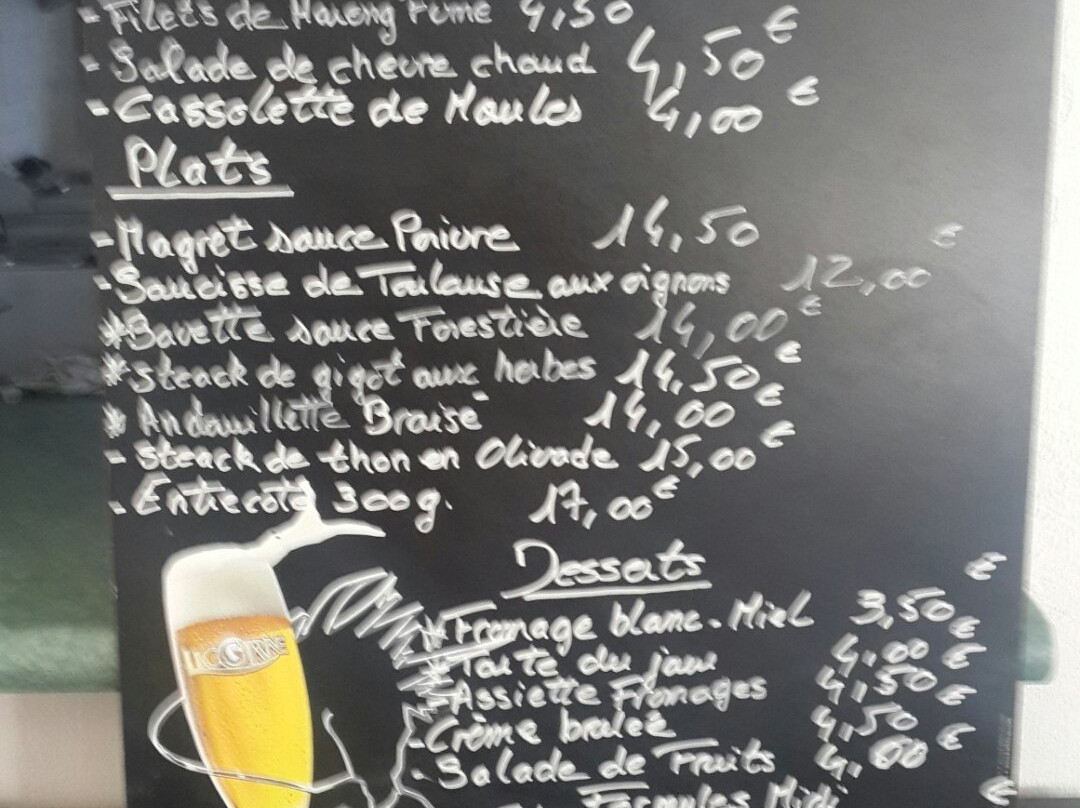 - Filets de Hareng Fumé 4,50 €
- Salade de chevre chaud 4,50 €
- Cassolette de Moules 4,00
Plats
- Magret sauce Poivre 14,50 €
- Saucisse de Toulouse aux oignons 12,00 €
* Bavette sauce Forestière 14,00 €
* steack de gigot aux herbes 14,50 €
* Andouillette Braisé 14,00 €
- steack de thon en Olivade 15,00
- Entrecote 300g. 17,00 €
Desserts €
* Fromage blanc-Miel 3,50 €
* Tarte du jour 4,00 €
- Assiette Fromages 4,50 €
- Crème brulée 4,50 €
- Salade de Fruits 4,00
Formules Midi €
LICORNE